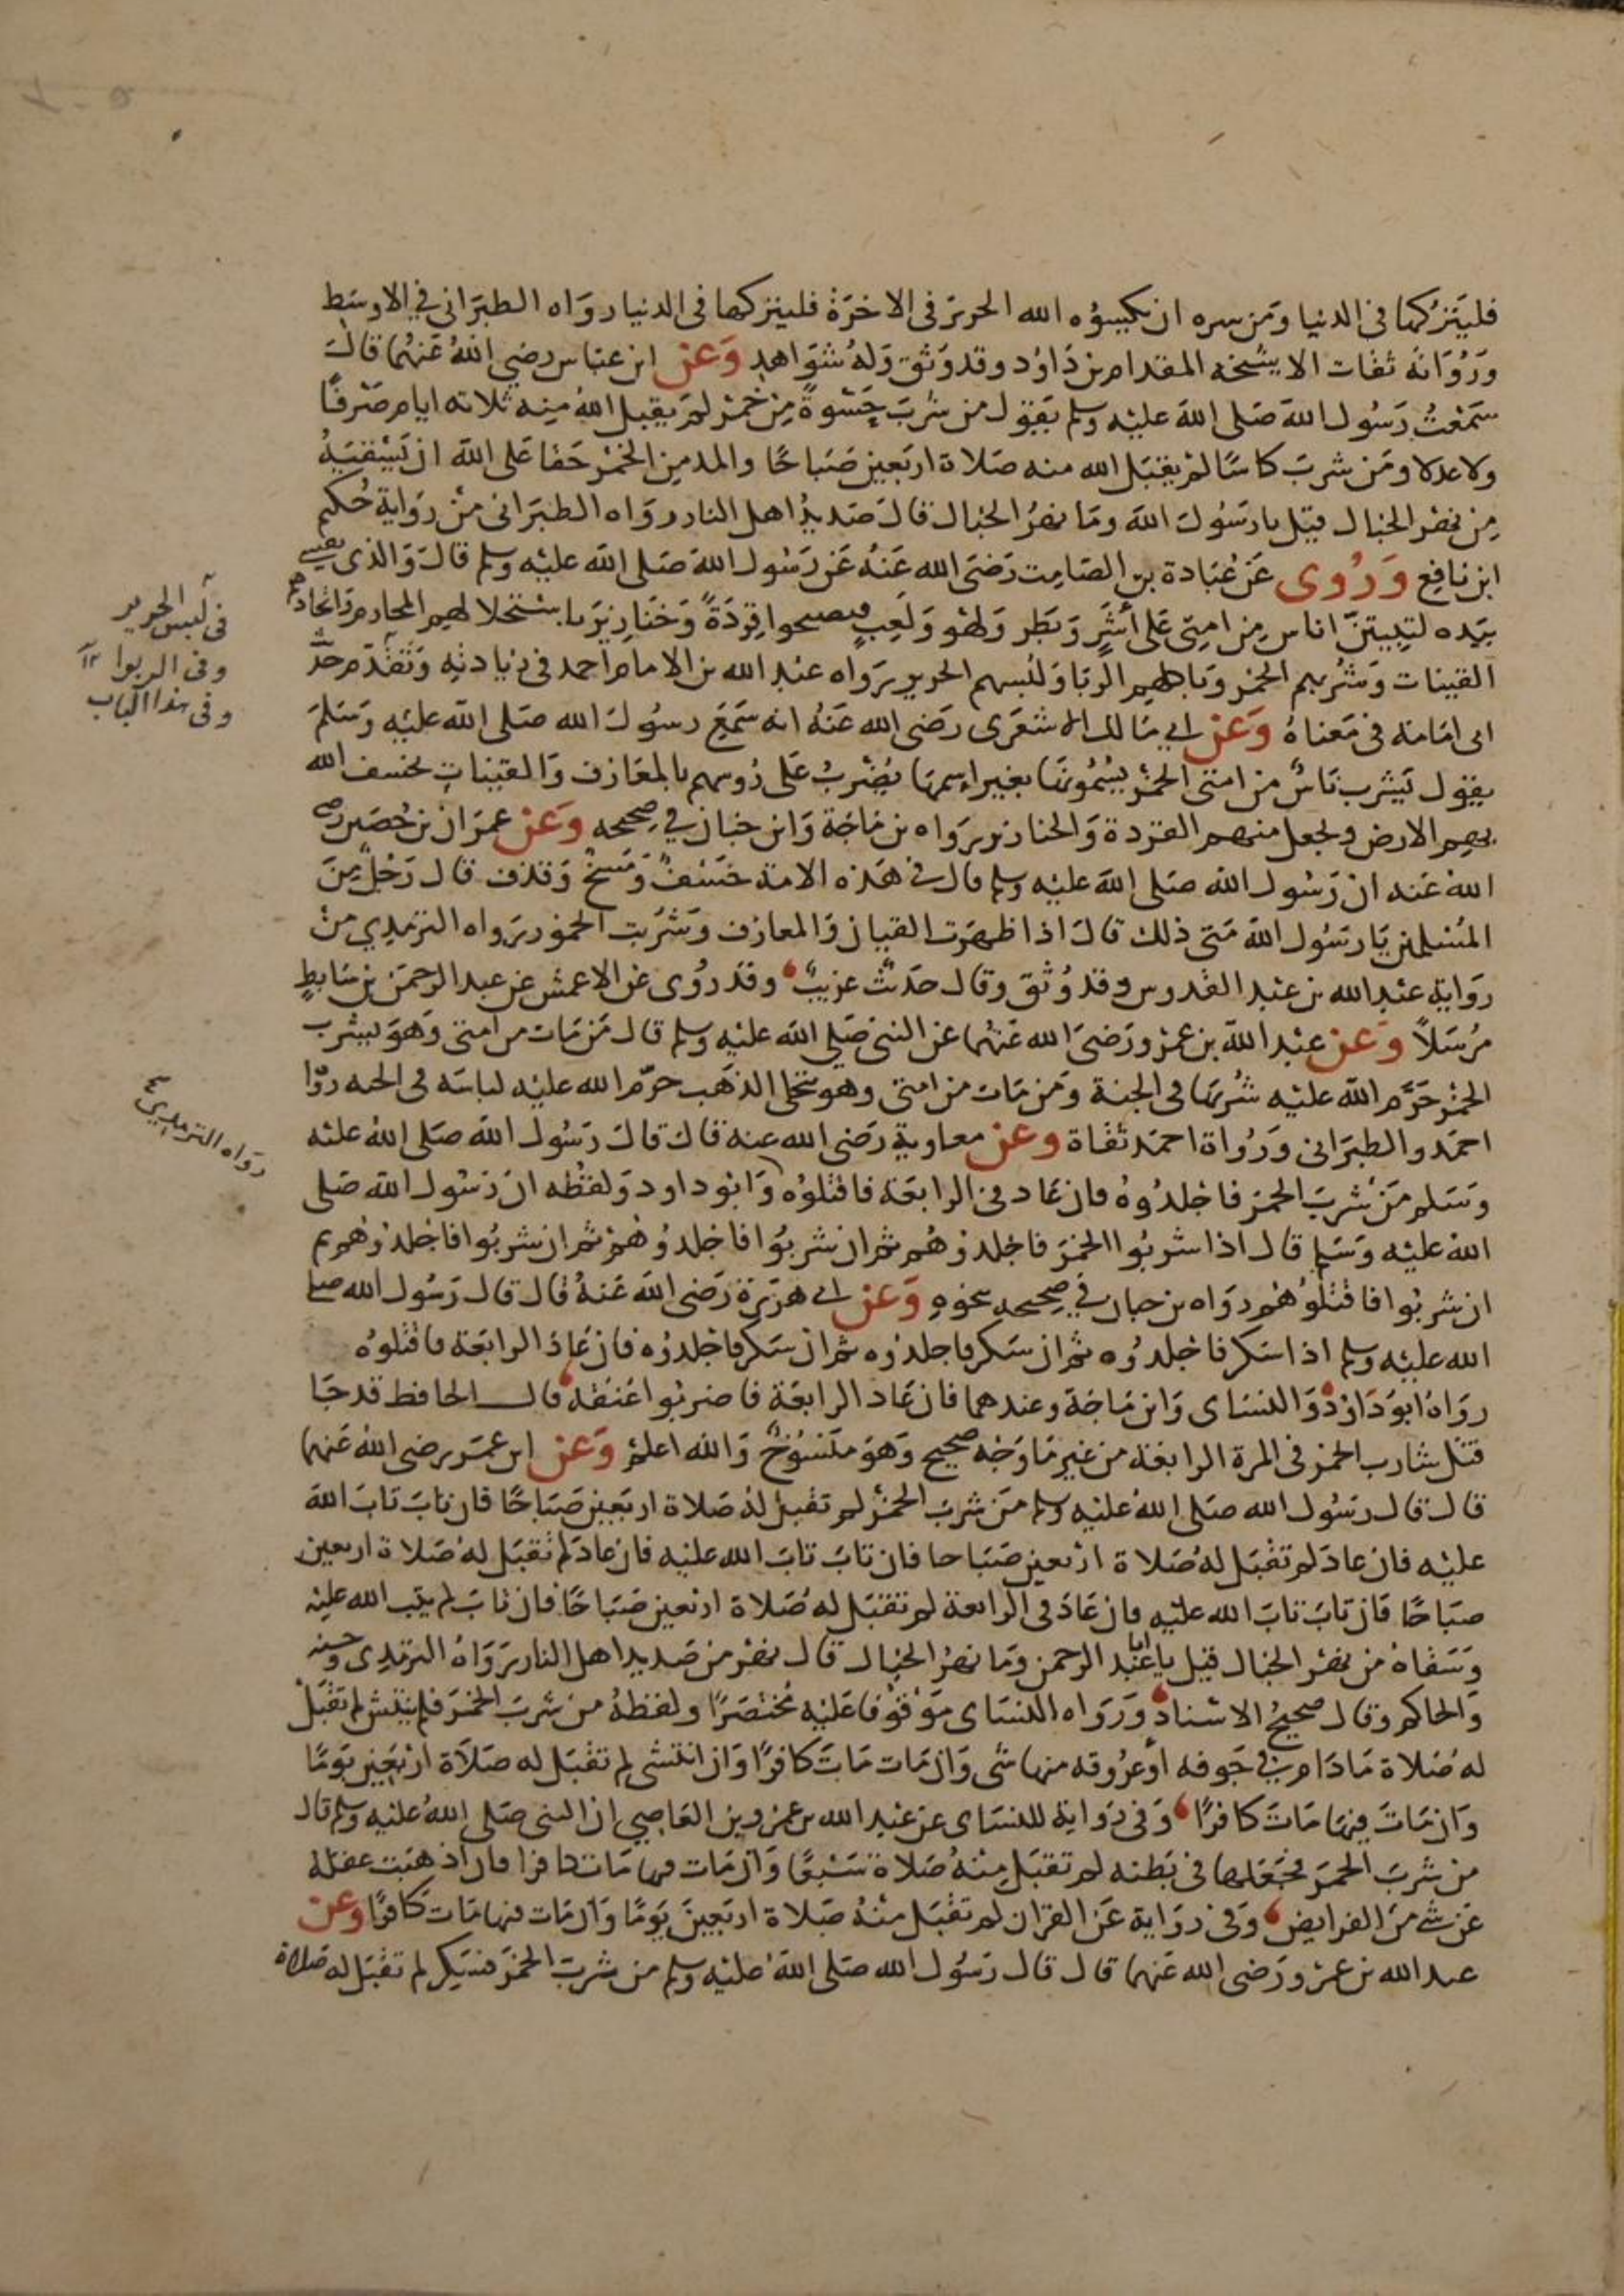 فليتركها في الدنيا ومن سره ان يكسوه الله الحرير في الاخرة فليتركها في الدنيا رواه الطبراني في الاوسط
ورواته ثقات الا شيخه المقدام بن داود وقد وثق وله شواهد وعن ابن عباس رضي الله عنهما قال
سمعت رسول الله صلى الله عليه وسلم يقول من شرب حسوة من خمر لم يقبل الله منه ثلاثه ايام صرفا
ولا عدلا ومن شرب كاسا لم يقبل الله منه صلاة اربعين صباحا والمدمن الخمر حقا على الله ان يسقيه
من نهر الخبال قيل يا رسول الله وما نهر الخبال قال صديد اهل النار رواه الطبراني من رواية حكيم
ابن نافع وروى عن عبادة بن الصامت رضى الله عنه عن رسول الله صلى الله عليه وسلم قال والذى نفسي
بيده لتبيتن اناس من امتي على أشر وبطر ولهو ولعب فيصبحوا قردة وخنازير باستحلالهم المحارم واتخاذهم
القينات وشربهم الخمر وباكلهم الربا ولبسهم الحرير رواه عبد الله بن الامام احمد في زياداته وتقدم حديث
ابى امامة فى معناه وعن ابي مالك الاشعرى رضى الله عنه انه سمع رسول الله صلى الله عليه وسلم
يقول يشرب ناس من امتى الخمر يسمونها بغير اسمها يضرب على رؤسهم بالمعازف والقينات يخسف الله
بهم الارض ويجعل منهم القردة والخنازير رواه بن ماجة وابن حبان في صحيحه وعن عمران بن حصين رضى
الله عنه ان رسول الله صلى الله عليه وسلم قال في هذه الامة خسف ومسخ وقذف قال رجل من
المسلمين يا رسول الله متى ذلك قال اذا ظهرت القيان والمعازف وشربت الخمور رواه الترمذي من
رواية عبد الله بن عبد القدوس وقد وثق وقال حديث غريب وقد روى عن الاعمش عن عبد الرحمن بن سابط
مرسلا وعن عبد الله بن عمرو رضى الله عنهما عن النبى صلى الله عليه وسلم قال من مات من امتى وهو يشرب
الخمر حرم الله عليه شربها فى الجنة ومن مات من امتى وهو يتحلى الذهب حرم الله عليه لباسه فى الجنه رواه
احمد والطبرانى ورواة احمد ثقاة وعن معاوية رضى الله عنه قال قال رسول الله صلى الله عليه
وسلم من شرب الخمر فاجلدوه فان عاد فى الرابعة فاقتلوه وابو داود ولفظه ان رسول الله صلى
الله عليه وسلم قال اذا شربوا الخمر فاجلدوهم ثم ان شربوا فاجلدوهم ثم ان شربوا فاجلدوهم ثم
ان شربوا فاقتلوهم رواه بن حبان في صحيحه بنحوه وعن ابي هريرة رضى الله عنه قال قال رسول الله صلى
الله عليه وسلم اذا سكر فاجلدوه ثم ان سكر فاجلدوه ثم ان سكر فاجلدوه فان عاد الرابعة فاقتلوه
رواه ابو داود والنساى وابن ماجة وعندهما فان عاد الرابعة فاضربوا عنقه قال الحافظ قد جا
قتل شارب الخمر فى المرة الرابعة من غير ما وجه صحيح وهو منسوخ والله اعلم وعن ابن عمر رضى الله عنهما
قال قال رسول الله صلى الله عليه وسلم من شرب الخمر لم تقبل له صلاة اربعين صباحا فان تاب تاب الله
عليه فان عاد لم تقبل له صلاة اربعين صباحا فان تاب تاب الله عليه فان عاد لم تقبل له صلاة اربعين
صباحا فان تاب تاب الله عليه فان عاد فى الرابعة لم تقبل له صلاة اربعين صباحا فان تاب لم يتب الله عليه
وسقاه من نهر الخبال قيل يا ابا عبد الرحمن وما نهر الخبال قال نهر من صديد اهل النار رواه الترمذى وحسنه
والحاكم وقال صحيح الاسناد ورواه النساى موقوفا عليه مختصرا ولفظه من شرب الخمر فلم ينتش لم تقبل
له صلاة ما دام في جوفه او عروقه منها شى وان مات مات كافرا وان انتشى لم تقبل له صلاة اربعين يوما
وان مات فيها مات كافرا وفى رواية للنساى عن عبد الله بن عمرو بن العاصي ان النبى صلى الله عليه وسلم قال
من شرب الخمر فجعلها فى بطنه لم تقبل منه صلاة سبعا وان مات فيها مات كافرا فان اذهبت عقله
عن شى من الفرايض وفى رواية عن القران لم تقبل منه صلاة اربعين يوما وان مات فيها مات كافرا وعن
عبد الله بن عمرو رضى الله عنهما قال قال رسول الله صلى الله عليه وسلم من شرب الخمر فسكر لم تقبل له صلاة
فى لبس الحرير
وفى الربوا
وفى هذا الباب
رواه الترمذي